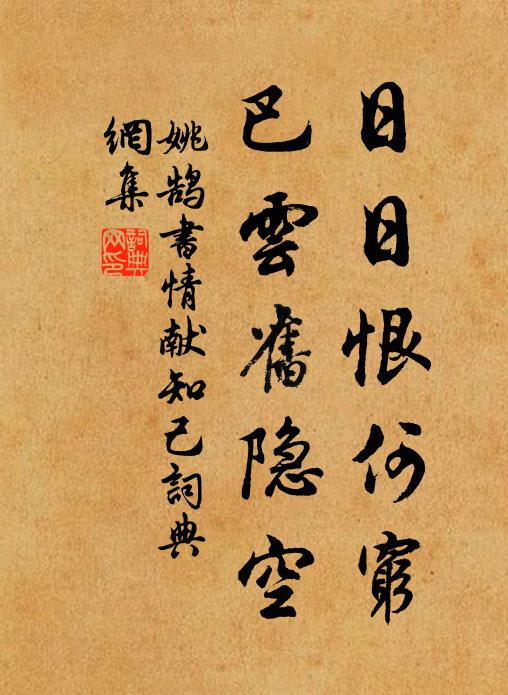 日日恨何窮
巴雲舊隐空
姚鹄書情献知己詞典
網集
詞典
网印